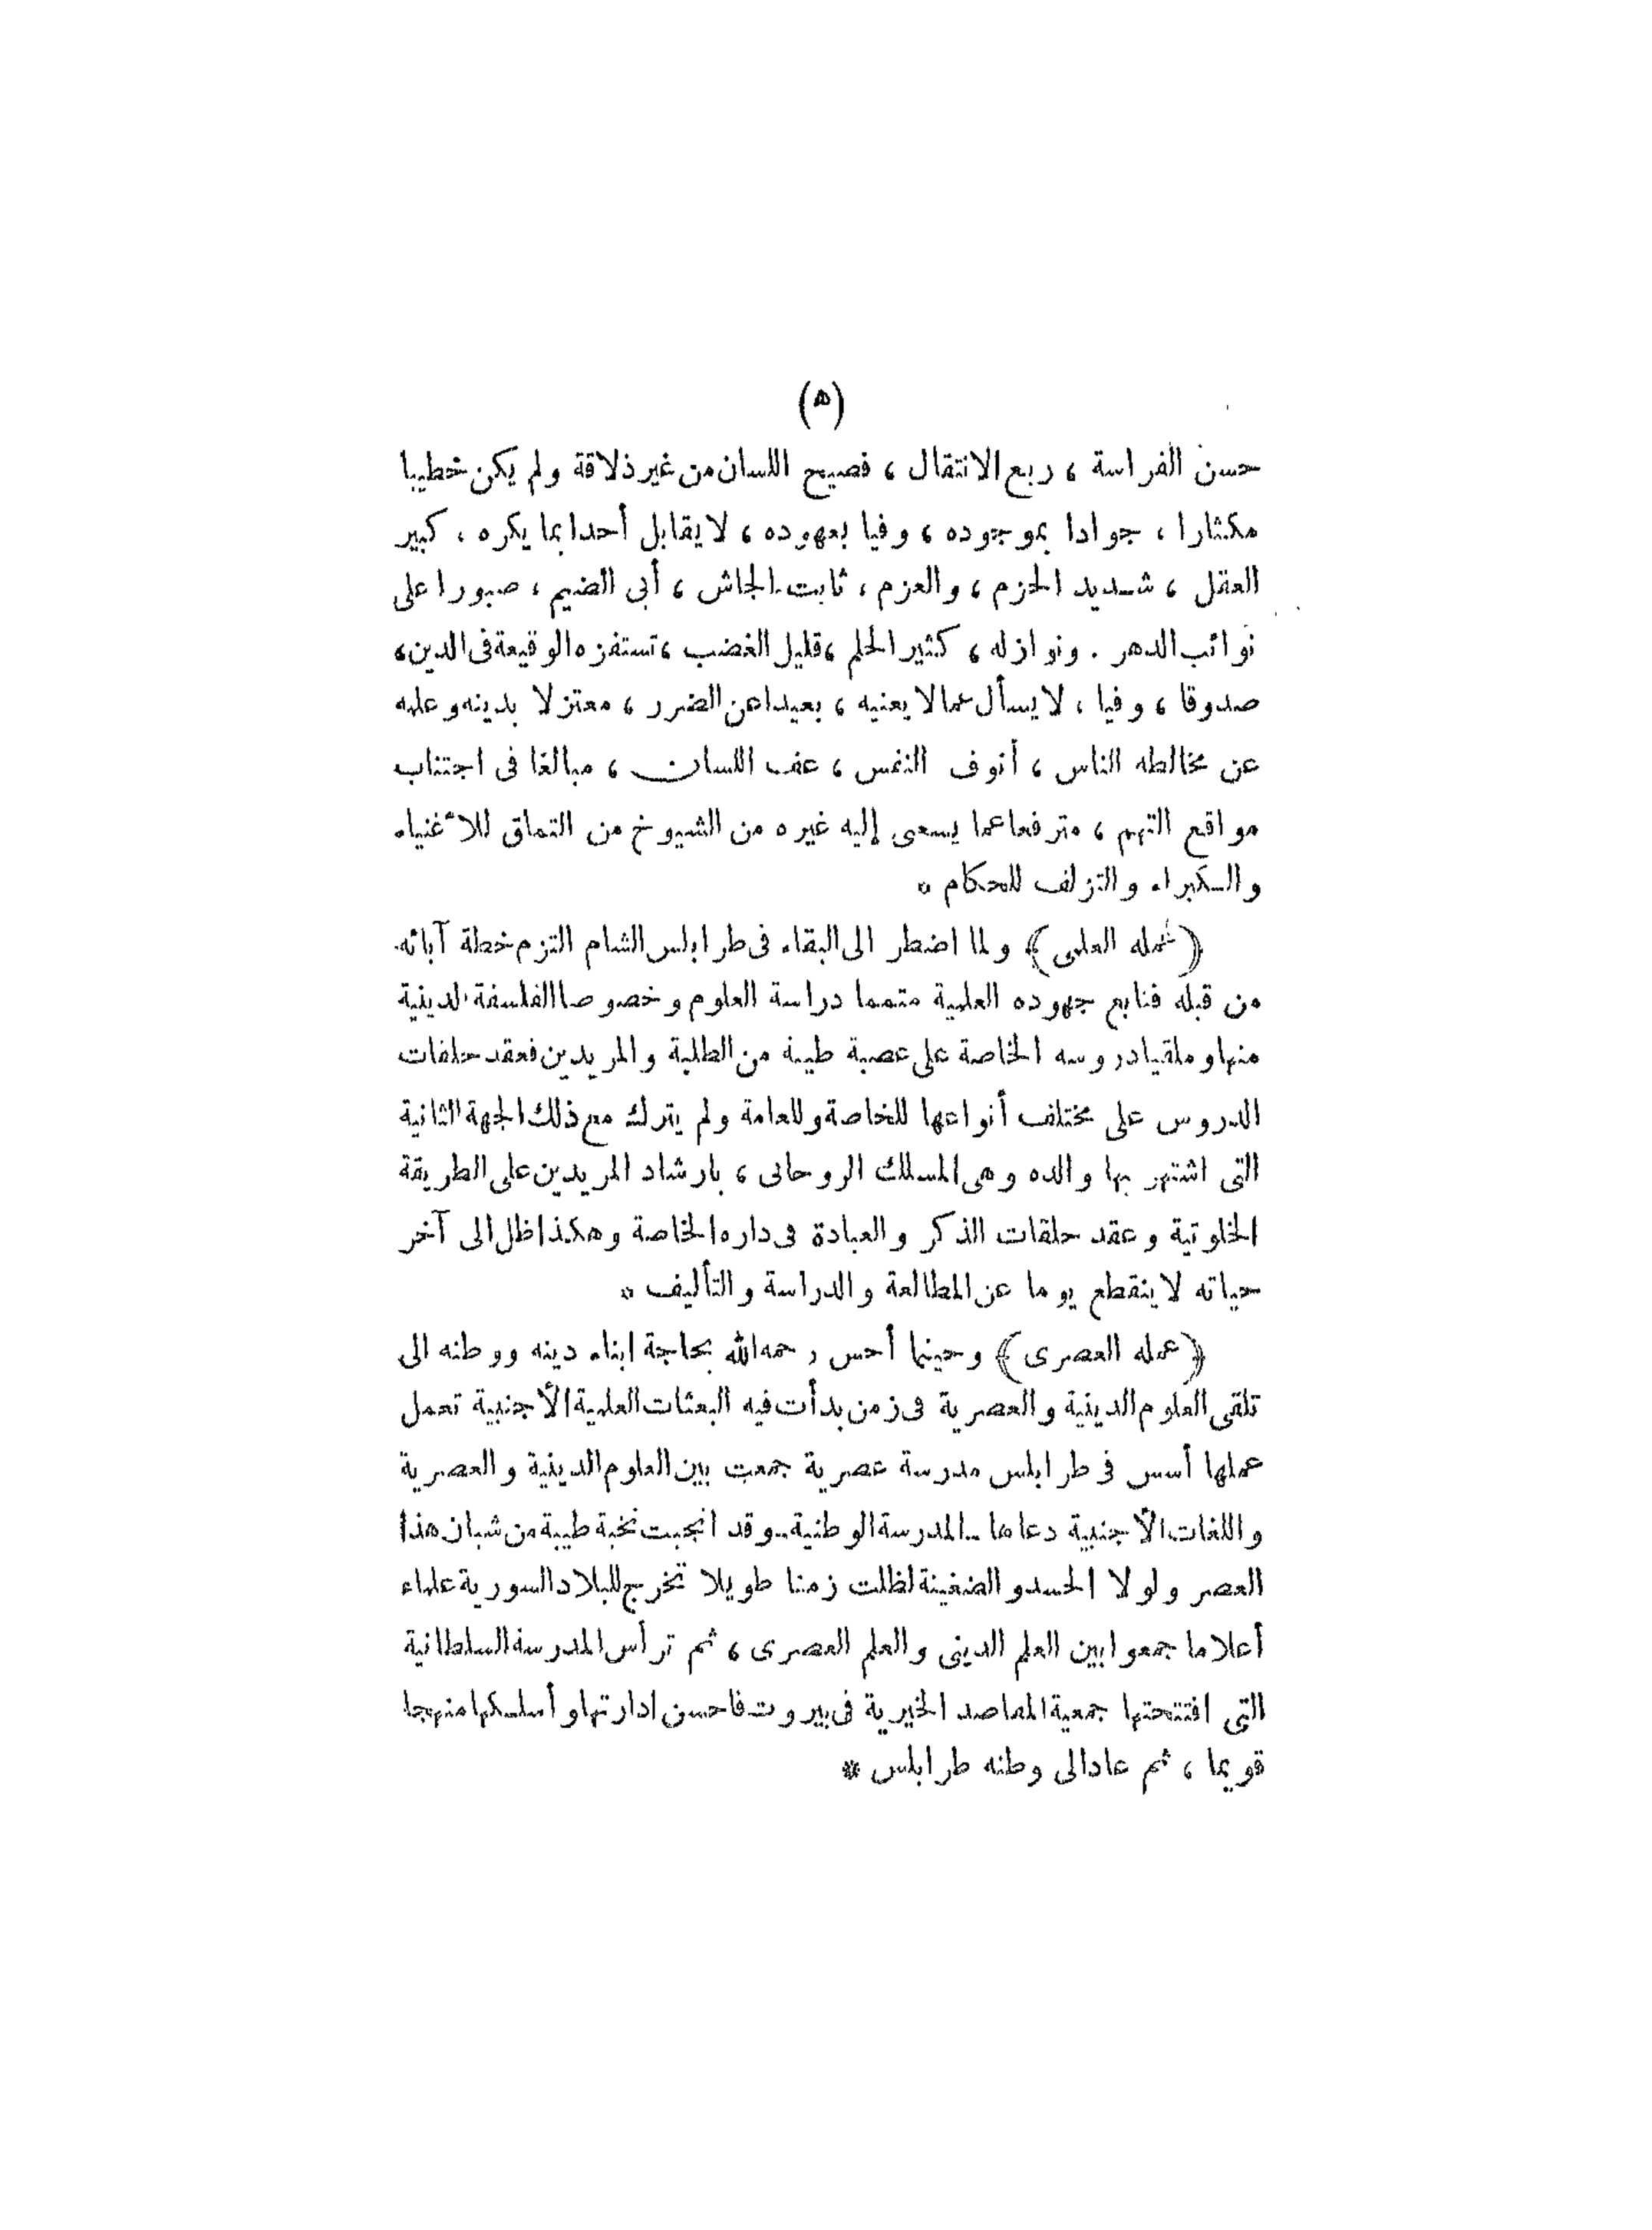 (ه)
حسن الفراسة ، ربع الانتقال ، فصيح اللسان من غير ذلاقة ولم يكن خطيبا
مكثارا ، جوادا بموجوده ، وفيا بعهوده ، لا يقابل أحدا بما يكره ، كبير
العقل ، شديد الحزم ، والعزم ، ثابت الجاش ، أبى الضيم ، صبورا على
نوائب الدهر . ونوازله ، كثير الحلم ، قليل الغضب ، تستفزه الوقيعة فى الدين ،
صدوقا ، وفيا ، لا يسأل عما لا يعنيه ، بعيدا عن الضرر ، معتزلا بدينه وعلمه
عن مخالطه الناس ، أنوف النفس ، عف اللسان ، مبالغا فى اجتناب
مواقع التهم ، مترفعا عما يسعى إليه غيره من الشيوخ من التملق للأغنياء
والكبراء والتزلف للحكام *
﴿عمله العلمى﴾ ولما اضطر الى البقاء فى طرابلس الشام التزم خطة آبائه
من قبله فتابع جهوده العلمية متمما دراسة العلوم وخصوصا الفلسفة الدينية
منها وملقيا دروسه الخاصة على عصبة طيبة من الطلبة والمريدين فعقد حلقات
الدروس على مختلف أنواعها للخاصة وللعامة ولم يترك مع ذلك الجهة الثانية
التى اشتهر بها والده وهى المسلك الروحانى ، بارشاد المريدين على الطريقة
الخلوتية وعقد حلقات الذكر والعبادة فى داره الخاصة وهكذا ظل الى آخر
حياته لا ينقطع يوما عن المطالعة والدراسة والتأليف *
﴿عمله العصرى﴾ وحينما أحس رحمه الله بحاجة ابناء دينه ووطنه الى
تلقى العلوم الدينية والعصرية فى زمن بدأت فيه البعثات العلمية الأجنبية تعمل
عملها أسس فى طرابلس مدرسة عصرية جمعت بين العلوم الدينية والعصرية
واللغات الأجنبية دعاها ــ المدرسة الوطنية ــ وقد انجبت نخبة طيبة من شبان هذا
العصر ولولا الحسد والضغينة لظلت زمنا طويلا تخرج للبلاد السورية علماء
أعلاما جمعوا بين العلم الدينى والعلم العصرى ، ثم ترأس المدرسة السلطانية
التى افتتحتها جمعية المقاصد الخيرية فى بيروت فاحسن ادارتها وأسلكها منهجا
قويما ، ثم عاد الى وطنه طرابلس *